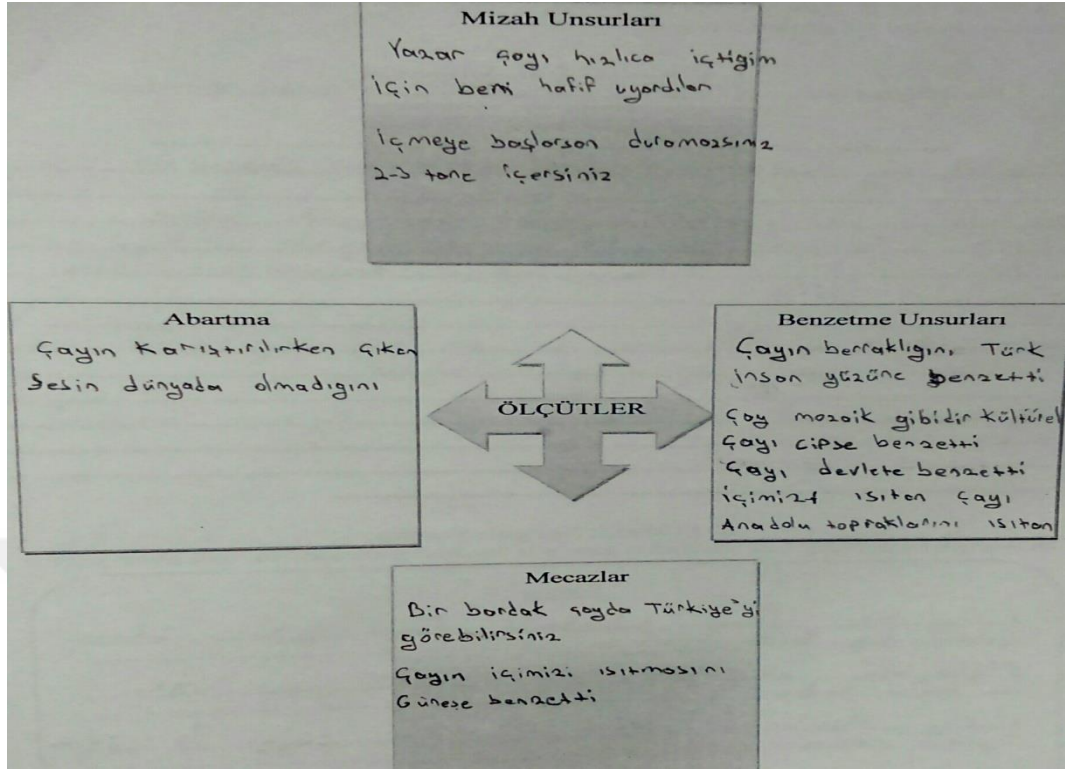 Mizah Unsurları
Yazar çayı hızlıca içtiğim
için beni hafif uyardılar
içmeye başlarsan duramazsınız
2-3 tane içersiniz
Abartma
Çayın karıştırılırken çıkan
Sesin dünyada olmadığını
ÖLÇÜTLER
Benzetme Unsurları
Çayın berraklığını Türk
insan yüzüne benzetti
Çay mozaik gibidir kültürel
Çayı cipse benzetti
Çayı devlete benzetti
içimizi ısıtan çayı
Anadolu topraklarını ısıtan
Mecazlar
Bir bardak çayda Türkiye'yi
görebilirsiniz
Çayın içimizi ısıtmasını
Güneşe benzetti